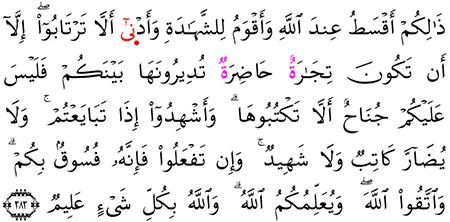 ذَٰلِكُمْ أَقْسَطُ عِندَ ٱللَّهِ وَأَقْوَمُ لِلشَّهَٰدَةِ وَأَدْنٜىٰٓ أَلَّا تَرْتَابُوٓا۟ ۖ إِلَّآ
أَن تَكُونَ تِجَٰرَةٌ حَاضِرَةٌ تُدِيرُونَهَا بَيْنَكُمْ فَلَيْسَ
عَلَيْكُمْ جُنَاحٌ أَلَّا تَكْتُبُوهَا ۗ وَأَشْهِدُوٓا۟ إِذَا تَبَايَعْتُمْ ۚ وَلَا
يُضَآرَّ كَاتِبٌ وَلَا شَهِيدٌ ۚ وَإِن تَفْعَلُوا۟ فَإِنَّهُۥ فُسُوقٌۢ بِكُمْ ۗ
وَٱتَّقُوا۟ ٱللَّهَ ۖ وَيُعَلِّمُكُمُ ٱللَّهُ ۗ وَٱللَّهُ بِكُلِّ شَىْءٍ عَلِيمٌ ٢٨٢